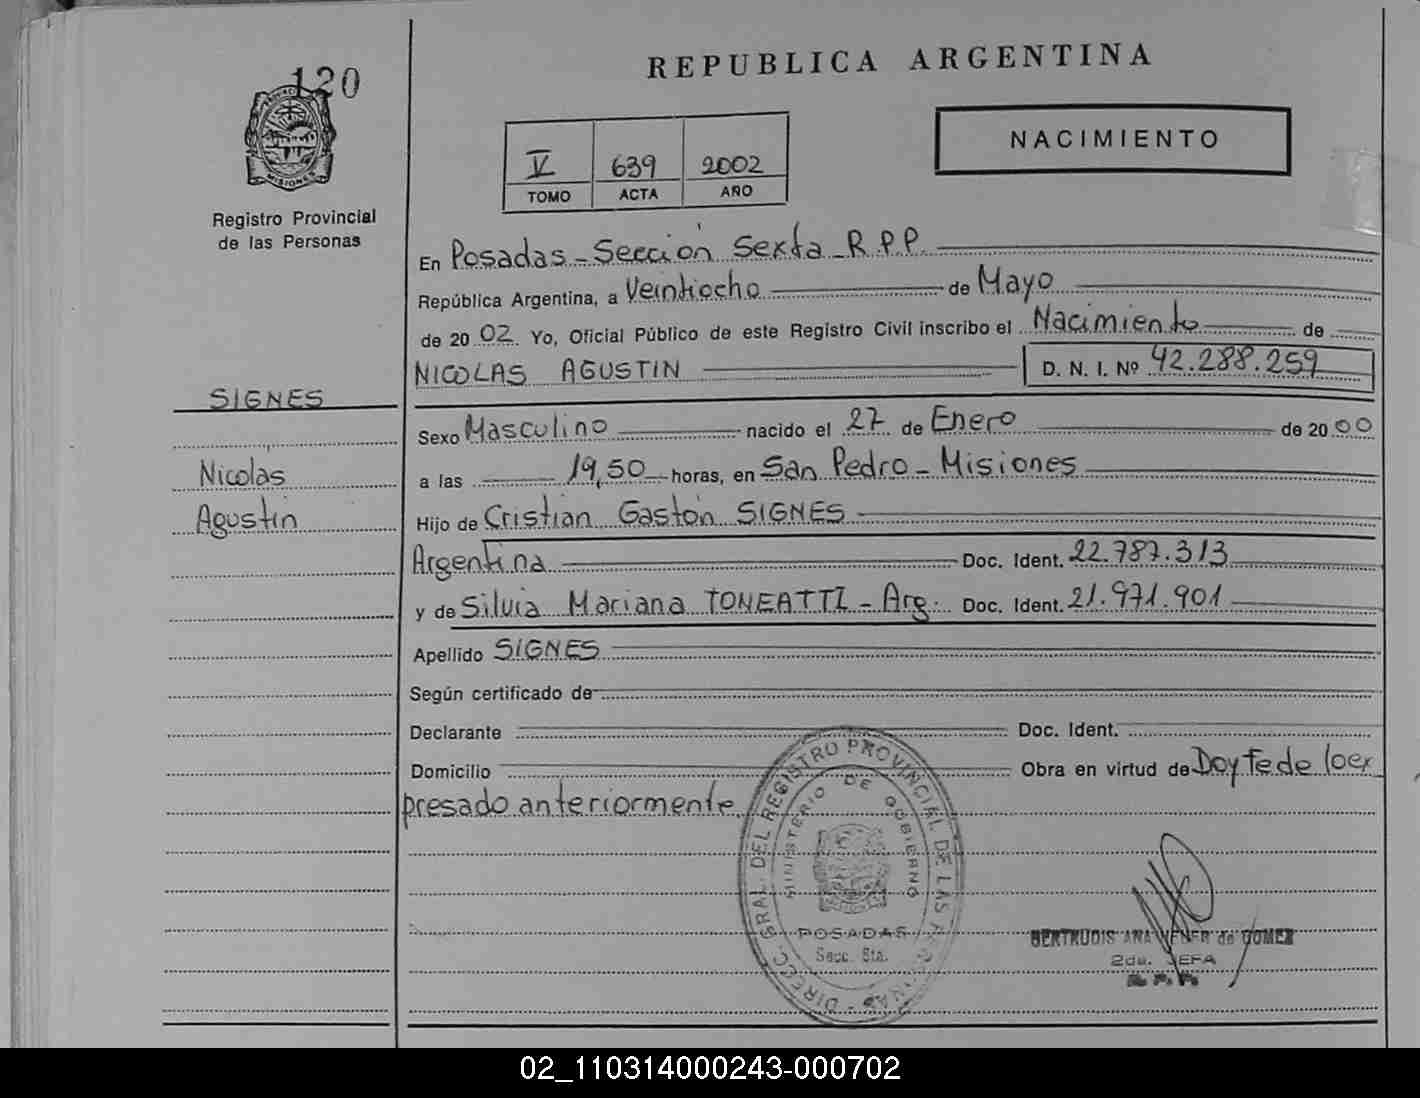 120
PROVINCIA
MISIONES
Registro Provincial
de las Personas
SIGNES
Nicolas
Agustin
REPUBLICA ARGENTINA
NACIMIENTO
V 639 2002
TOMO ACTA AÑO
En Posadas - Sección Sexta - R.P.P.
República Argentina, a Veintiocho de Mayo
de 2002 Yo, Oficial Público de este Registro Civil inscribo el Nacimiento de
NICOLAS AGUSTIN D. N. I. Nº 42.288.259
Sexo Masculino nacido el 27 de Enero de 2000
a las 19,50 horas, en San Pedro - Misiones
Hijo de Cristian Gastón SIGNES
Argentina Doc. Ident. 22.787.313
y de Silvia Mariana TONEATTI - Arg. Doc. Ident. 21.971.901
Apellido SIGNES
Según certificado de
Declarante Doc. Ident.
Domicilio Obra en virtud de Doy fe de lo ex
presado anteriormente.
DIRECC. GRAL. DEL REGISTRO PROVINCIAL DE LAS PERSONAS
MINISTERIO DE GOBIERNO
POSADAS
Secc. 6ta.
GERTRUDIS ANA de GOMEZ
2da. JEFA
R. P. P.
02_110314000243-000702